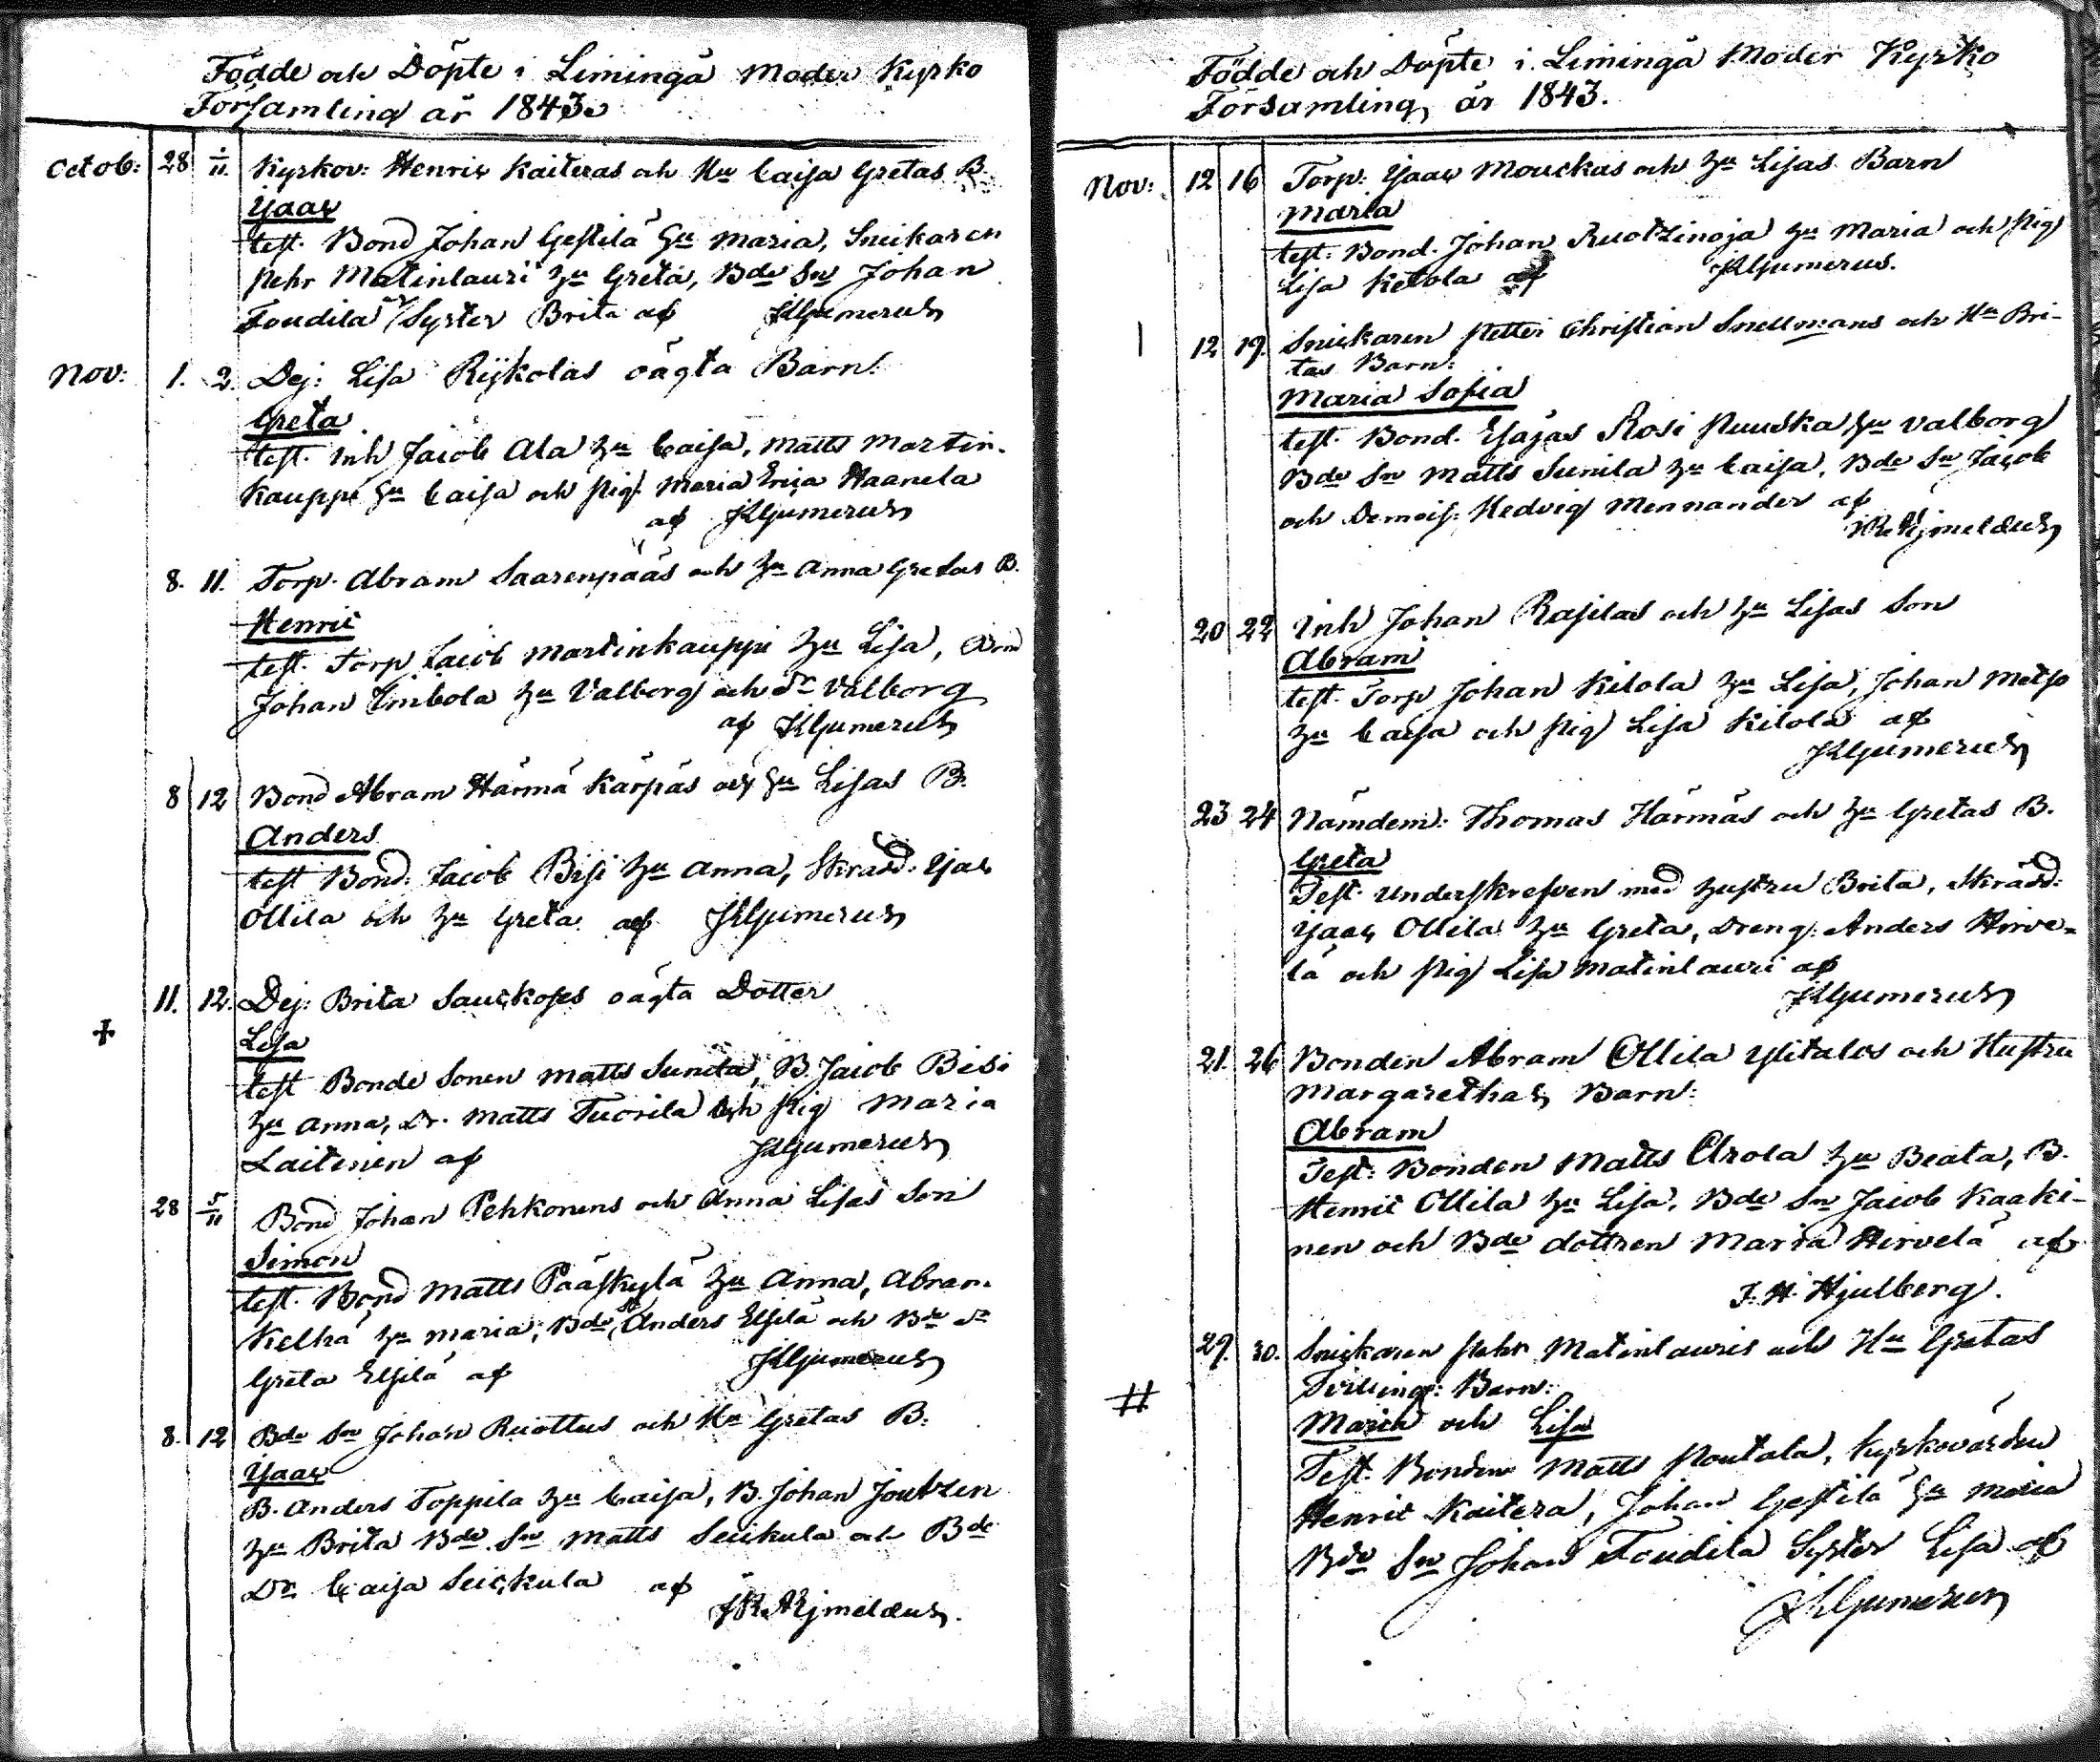 Födde och Döpte i Limingå Moder Kyrko
Församling år 1843.
Octob: 28 1/11. Kyrkov: Henric Kaiteras och Hu Caisa Gretas B.
Ysaac
test. Bond Johan Gestilä Hu Maria, Snickaren
Pehr Matinlauri Hu Greta, Bde Sn Johan
Toudila Syster Brita af JKGumerus
Nov: 1. 2. Dej: Lisa Rijkolas oägta Barn:
Greta
test. Inh Jacob Ala Hu Caisa, Matts Martin-
kauppi Hu Caisa och Pig. Maria Erica Haanela
af JKGumerus
8. 11. Torp. Abram Saarenpääs och Hu Anna Gretas B.
Henric
test. Torp Jacob Martinkauppi Hu Lisa,
Johan Hu Valborg och Dr Valborg
af JKGumerus
8 12 Bond Abram Härmä Kärpäs och Hu Lisas B.
Anders
test Bond. Jacob Bisi Hu Anna, Skrädd. Ysac
Ollila och Hu Greta af JKGumerus
11. 12. Dej: Brita Sauckojes oägta Dotter
Lisa
test Bonde Sonen Matts Sunila, B. Jacob Bisi
Hu Anna, Dr. Matts Tuorila och Pig Maria
Laitinen af JKGumerus
28 5/11 Bond Johan Pehkonens och Anna Lisas Son
Simon
test. Bond Matts Pääskylä Hu Anna, Abram
Kelhä Hu Maria, Bde Sn Anders Elfilä och Bde Dr
Greta Elfilä af JKGumerus
8. 12 Bde Sn Johan Ruottus och Hu Gretas B.
Ysaac
B. Anders Toppila Hu Caisa, B. Johan Joutzen
Hu Brita Bde Sn Matts Seickula och Bde
Dr Caisa Seickula af
Födde och Döpte i Limingå Moder Kyrko
Församling år 1843.
Nov: 12 16 Torp: Ysaac Mouckas och Hu Lisas Barn
Maria
test. Bond. Johan Ruotzinoja Hu Maria och Pig
Lisa Ketola af JKGumerus.
12 19. Snickaren Petter Christian Snellmans och Hu Bri-
tas Barn:
Maria Sofia
test. Bond. Esajas Rosi Ruuska Hu Valborg
Bde Sn Matts Sunila Hu Caisa, Bde Sn Jacob
och Demois: Hedvig Mennander af
20 22 Inh Johan Rasilas och Hu Lisas Son
Abram
test. Torp Johan Kilola Hu Lisa, Johan Metso
Hu Caisa och Pig Lisa Kilola af
JKGumerus
23 24 Nämdem: Thomas Härmäs och Hu Gretas B.
Greta
Test. Underskrefven med Hustru Brita, Skrädd:
Ysaac Ollila Hu Greta, Dreng. Anders Hirve-
lä och Pig Lisa Matinlauri af
JKGumerus
21. 26 Bonden Abram Ollila Ylitalos och Hustru
Margarethas Barn:
Abram
Test: Bonden Matts Arola Hu Beata, B.
Henric Ollila Hu Lisa, Bde Sn Jacob Kaaki-
nen och Bde dottren Maria Hirvelä af
J. H. Hjulberg.
29. 30. Snickaren Pehr Matinlauris och Hu Gretas
Tvilling: Barn:
Maria och Lisa
Test. Bonden Matts Poutala, Kyrkovärden
Henric Kaitera, Johan Gestilä Hu Maria
Bde Sn Johan Toudila Syster Lisa af
JKGumerus